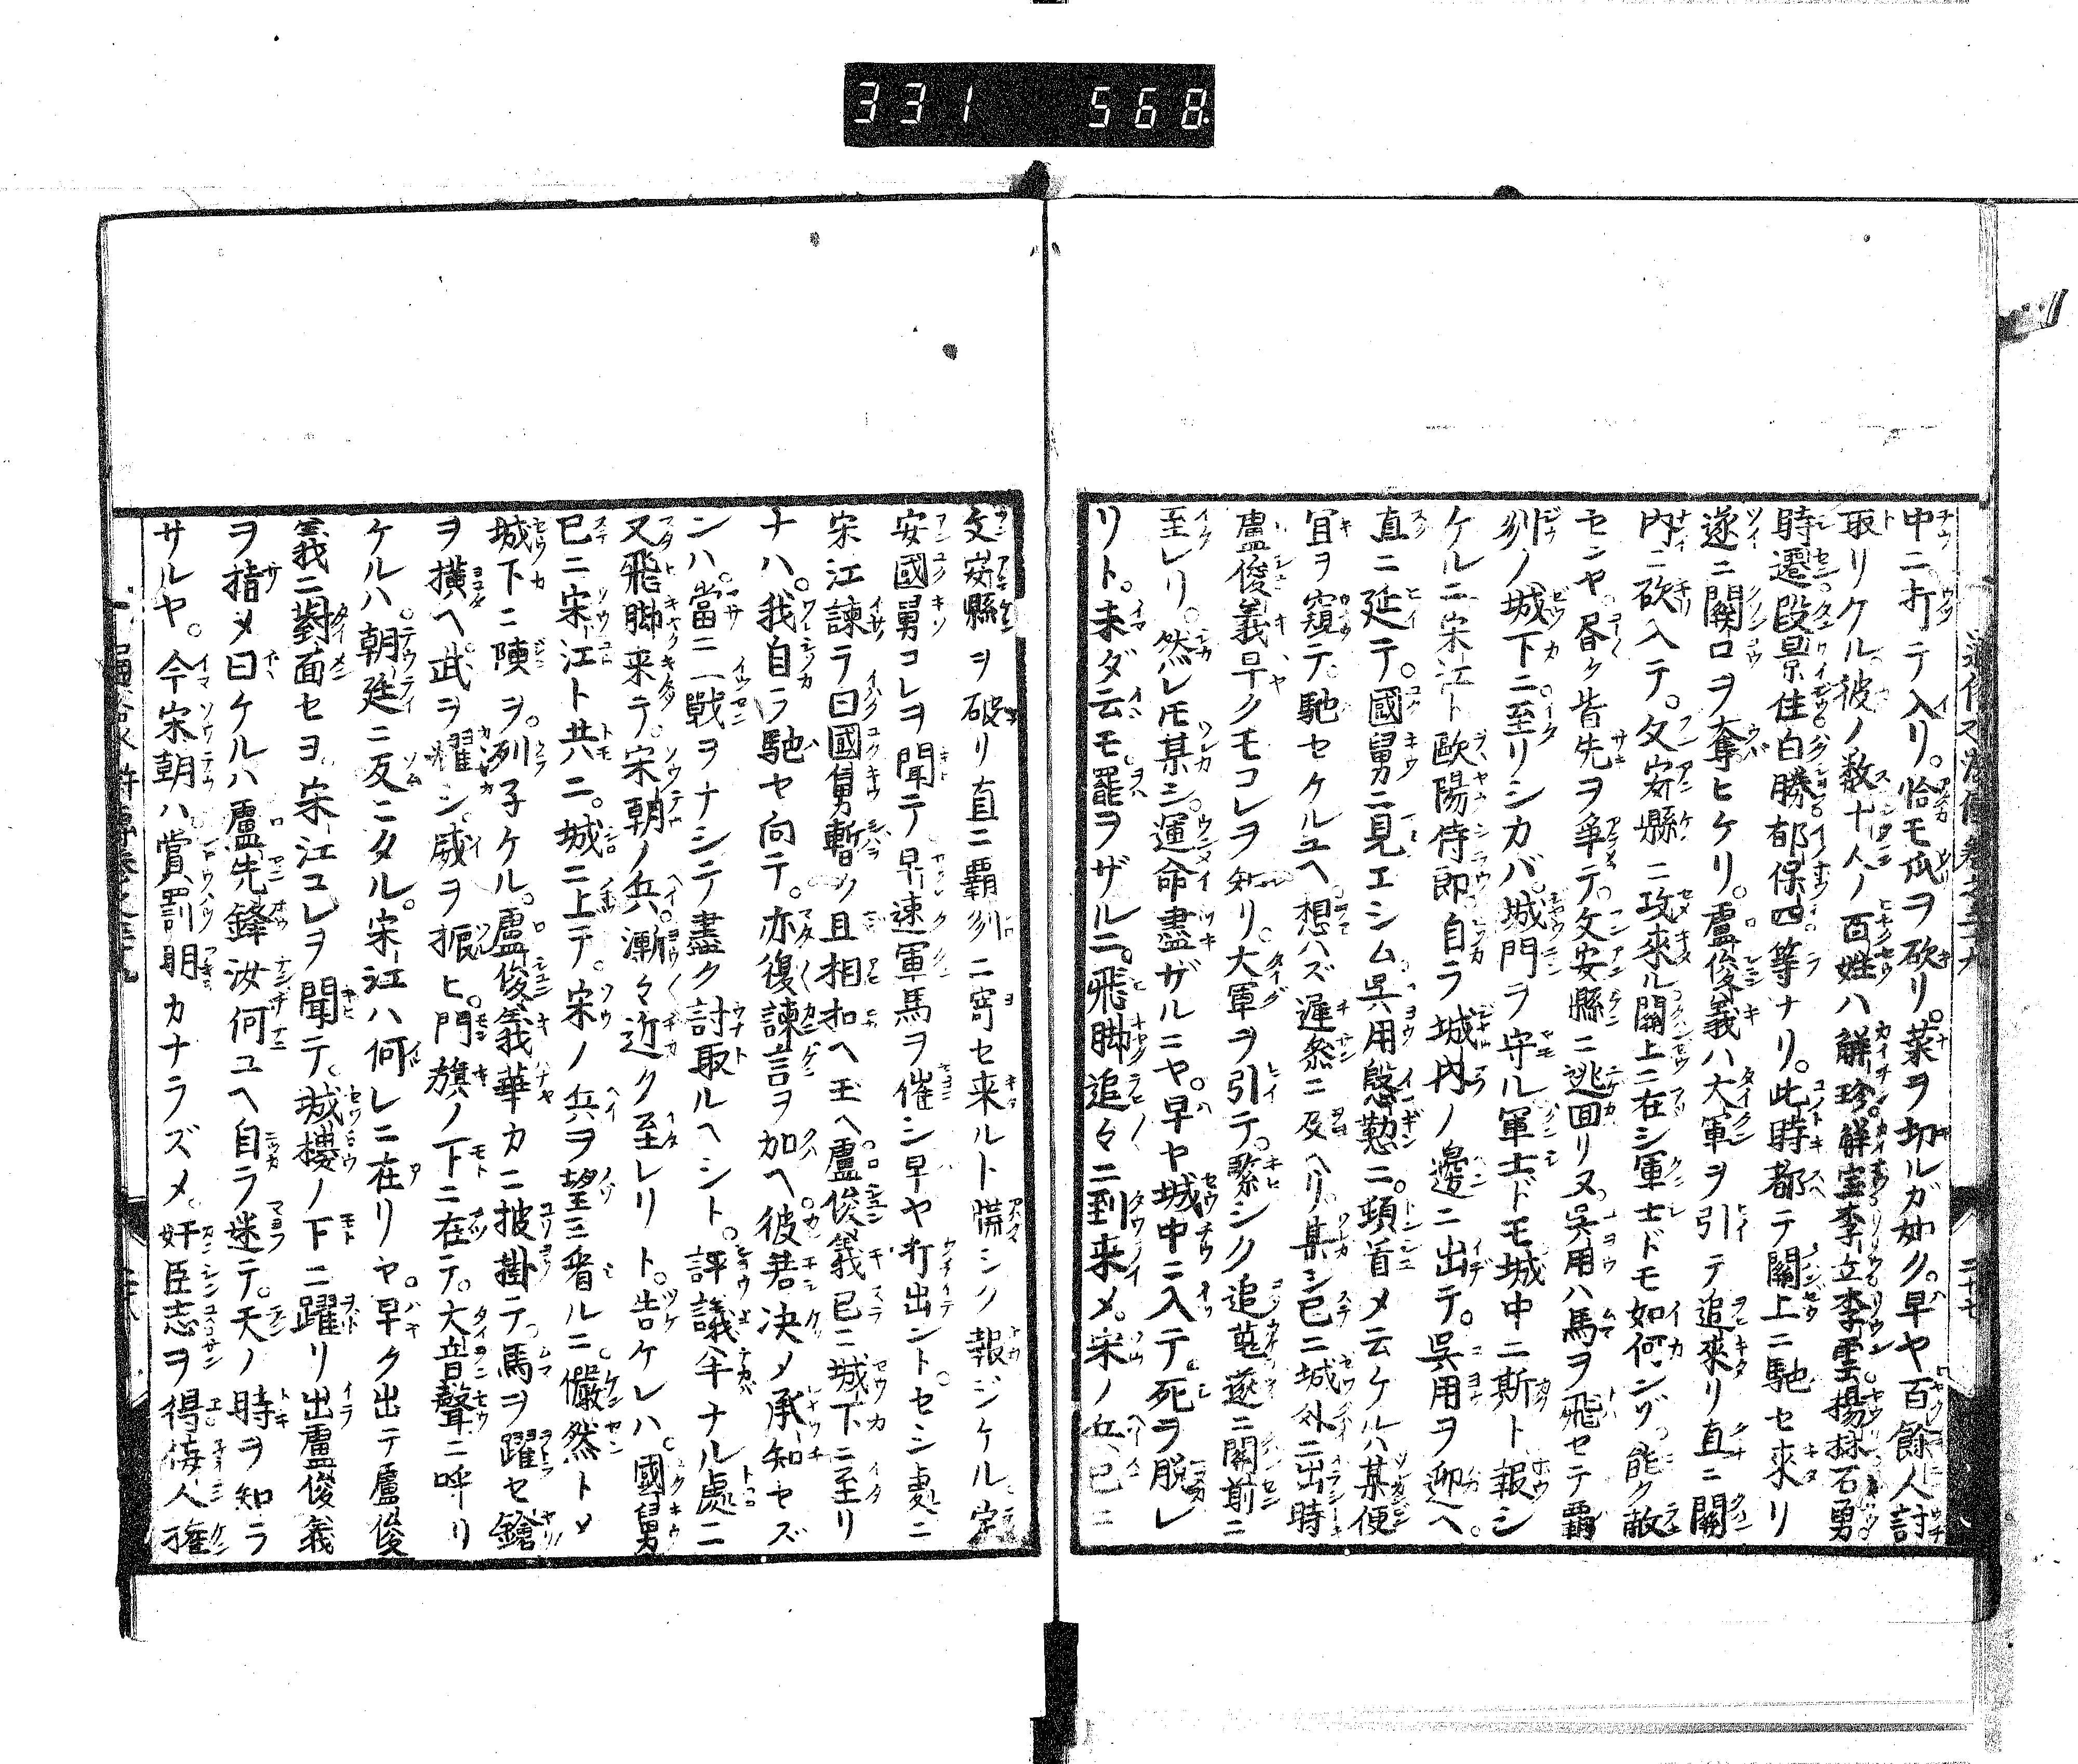 331 568
中ニ打テ入リ。恰モ瓜ヲ砍リ。菜ヲ切ルガ如ク。早ヤ百餘人討
取リケル。彼ノ数十人ノ百姓ハ解珍。解宝李立李雲楊林石勇
時遷段景住白勝郁保四等ナリ。此時都テ關上ニ馳セ來リ
遂ニ關口ヲ奪ヒケリ。盧俊義ハ大軍ヲ引テ追來リ直ニ關
内ニ砍入テ。文安縣ニ攻來ル關上ニ在シ軍士ドモ如何ンゾ能ク敵
センヤ。各ク皆先ヲ爭テ。文安縣ニ逃回リヌ。呉用ハ馬ヲ飛セテ覇
州ノ城下ニ至リシカバ。城門ヲ守ル軍士ドモ城中ニ斯ト報シ
ケルニ宋江ト歐陽侍郎自ラ城内ノ邊ニ出テ。呉用ヲ迎ヘ。
直ニ延テ。國舅ニ見エシム呉用慇懃ニ。頓首メ云ケルハ某便
宜ヲ窺テ。馳セケルユヘ想ハズ遲参ニ及ヘリ。某シ已ニ城外ニ出時
盧俊義早クモコレヲ知リ。大軍ヲ引テ。緊シク追趕遂ニ關前ニ
至レリ。然レモ某シ。運命盡ザルニヤ。早ヤ城中ニ入テ。死ヲ脱レ
リト。未ダ云モ罷ヲザルニ。飛脚追々ニ到来メ。宋ノ兵已ニ
文安縣ヲ破リ直ニ覇州ニ寄セ来ルト慌シク報ジケル定
安國舅コレヲ聞テ早速軍馬ヲ催シ早ヤ打出ント。セシ處ニ
宋江諫ラ曰國舅暫ク且相扣ヘ玉ヘ盧俊義已ニ城下ニ至リ
ナハ。我自ラ馳セ向テ。亦復諫言ヲ加ヘ彼若决メ承知セズ
ンハ。當ニ一戰ヲナシテ盡ク討取ルヘシト。評議半ナル處ニ
又飛脚来テ。宋朝ノ兵漸々近ク至レリト。告ケレハ。國舅
已ニ宋江ト共ニ。城ニ上テ。宋ノ兵ヲ望ミ看ルニ。儼然トメ
城下ニ陳ヲ。列子ケル。盧俊義華カニ披掛テ。馬ヲ躍セ鎗
ヲ横ヘ武ヲ耀シ。威ヲ振ヒ。門旗ノ下ニ在テ。大音聲ニ呼リ
ケルハ。朝廷ニ反ニタル。宋江ハ何レニ在リヤ。早ク出テ盧俊
義ニ對面セヨ宋江コレヲ聞テ。城樓ノ下ニ躍リ出盧俊義
ヲ指メ曰ケルハ盧先鋒汝何ユヘ自ラ迷テ。天ノ時ヲ知ラ
サルヤ。今宋朝ハ賞罰明カナラズメ。奸臣志ヲ得侫人権